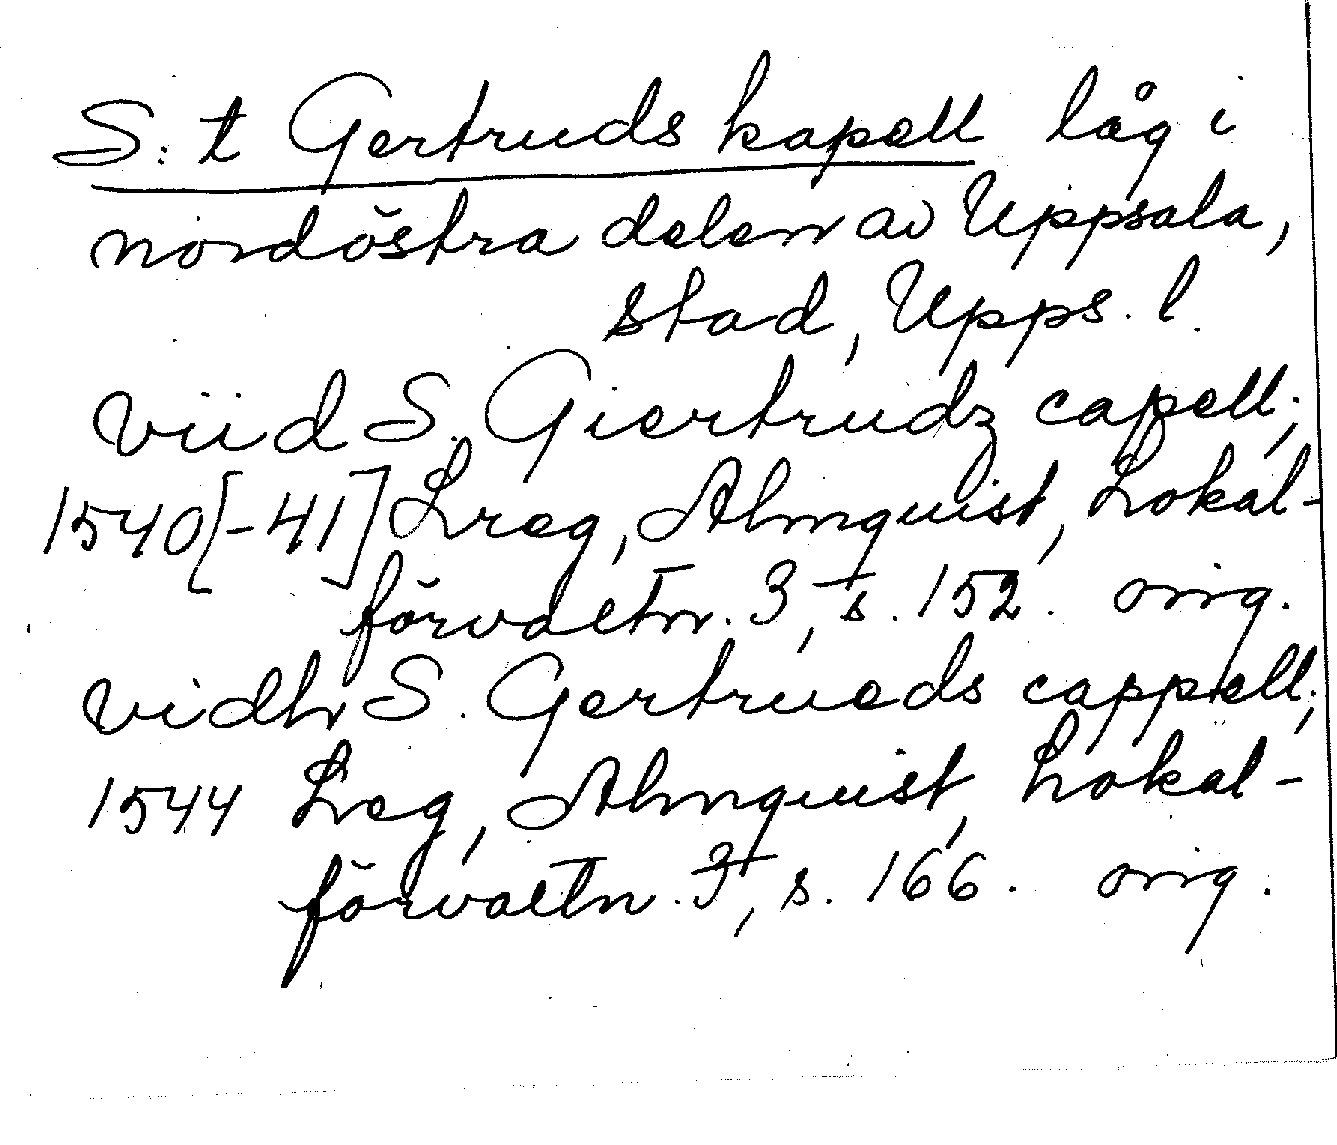 S:t Gertruds kapell låg i
nordöstra delen av Uppsala,
stad, Upps. l.
viid S. Giertrudz capell;
1540[-41] Lreg, Almquist, Lokal-
förvaltn. 3, s. 152. orig.
vidh S. Gertrueds cappell;
1544 Lreg, Almquist, Lokal-
förvaltn. 3, s. 166. orig.